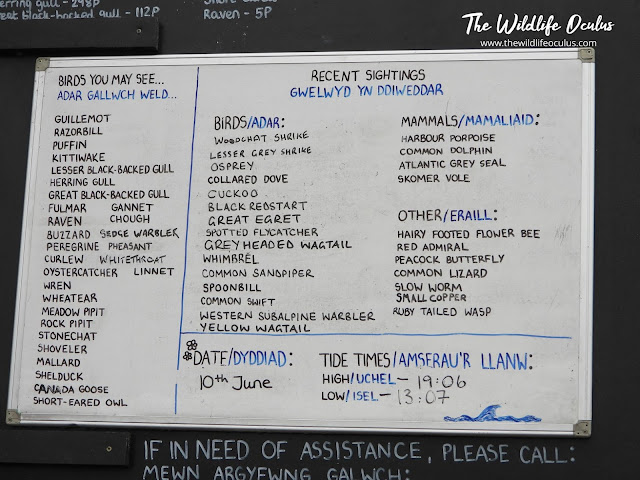 erring gull - 298P
reat black-backed gull - 112P
Raven - 5P
The Wildlife Oculus
www.thewildlifeoculus.com
BIRDS YOU MAY SEE...
ADAR GALLWCH WELD...
GUILLEMOT
RAZORBILL
PUFFIN
KITTIWAKE
LESSER BLACK-BACKED GULL
HERRING GULL
GREAT BLACK-BACKED GULL
FULMAR GANNET
RAVEN CHOUGH
BUZZARD SEDGE WARBLER
PEREGRINE PHEASANT
CURLEW WHITETHROAT
OYSTERCATCHER LINNET
WREN
WHEATEAR
MEADOW PIPIT
ROCK PIPIT
STONECHAT
SHOVELER
MALLARD
SHELDUCK
CANADA GOOSE
SHORT-EARED OWL
RECENT SIGHTINGS
GWELWYD YN DDIWEDDAR
BIRDS/ADAR:
WOODCHAT SHRIKE
LESSER GREY SHRIKE
OSPREY
COLLARED DOVE
CUCKOO
BLACK REDSTART
GREAT EGRET
SPOTTED FLYCATCHER
GREY HEADED WAGTAIL
WHIMBREL
COMMON SANDPIPER
SPOONBILL
COMMON SWIFT
WESTERN SUBALPINE WARBLER
YELLOW WAGTAIL
MAMMALS/MAMALIAID:
HARBOUR PORPOISE
COMMON DOLPHIN
ATLANTIC GREY SEAL
SKOMER VOLE
OTHER/ERAILL:
HAIRY FOOTED FLOWER BEE
RED ADMIRAL
PEACOCK BUTTERFLY
COMMON LIZARD
SLOW WORM
SMALL COPPER
RUBY TAILED WASP
DATE/DYDDIAD:
10th June
TIDE TIMES/AMSERAU'R LLANW:
HIGH/UCHEL - 19:06
LOW/ISEL - 13:07
IF IN NEED OF ASSISTANCE, PLEASE CALL:
MEWN ARGYFWNG GALWCH: